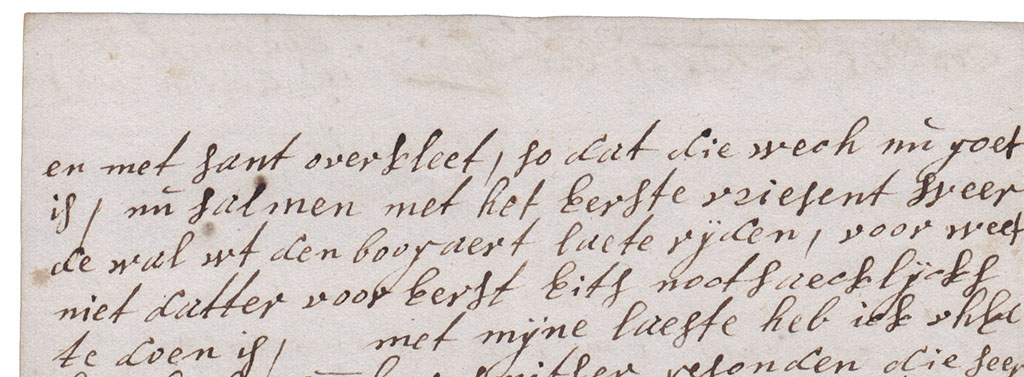 en met sant overkleet, so dat die wech nu goet
is, nu salmen met het eerste vriesent weer
de wal wt den boogaert laete ryden, voor weet
niet datter voor eerst eits nootsaecklyckh
te doen is, met myne laeste heb ick
gesonden die seer